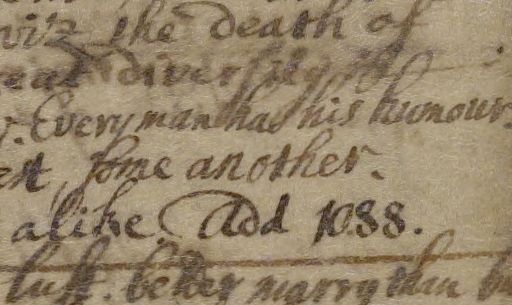 viz the death of
great diversity of
Every man has his humour.
est, some another.
alike. Add 1088.
lust. better marry than bu